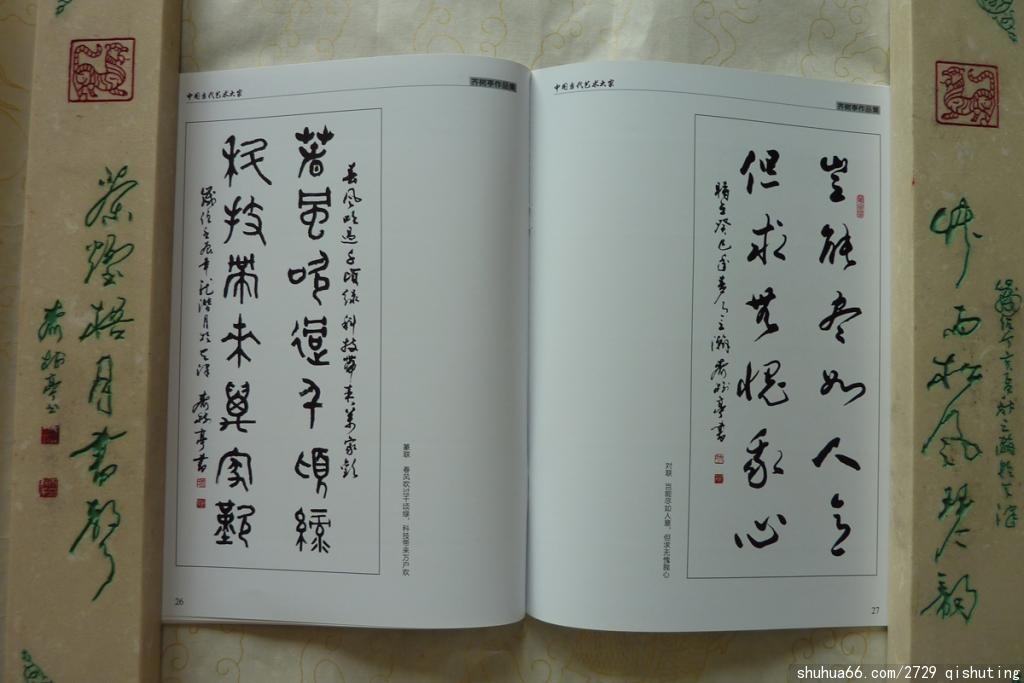 中国当代艺术大家
齐树亭作品集
春风吹过千顷绿
科技带来万家歡
春风吹过千顷绿科技带来万家歡
篆联 春风吹过千顷绿,科技带来万户欢
26
中国当代艺术大家
齐树亭作品集
岂能尽如人意
但求无愧我心
齐树亭书
对联 岂能尽如人意,但求无愧我心
27
竹雨松风琴韵
茶烟梧月书声
齐树亭书
shuhua66.com/2729 qishuting